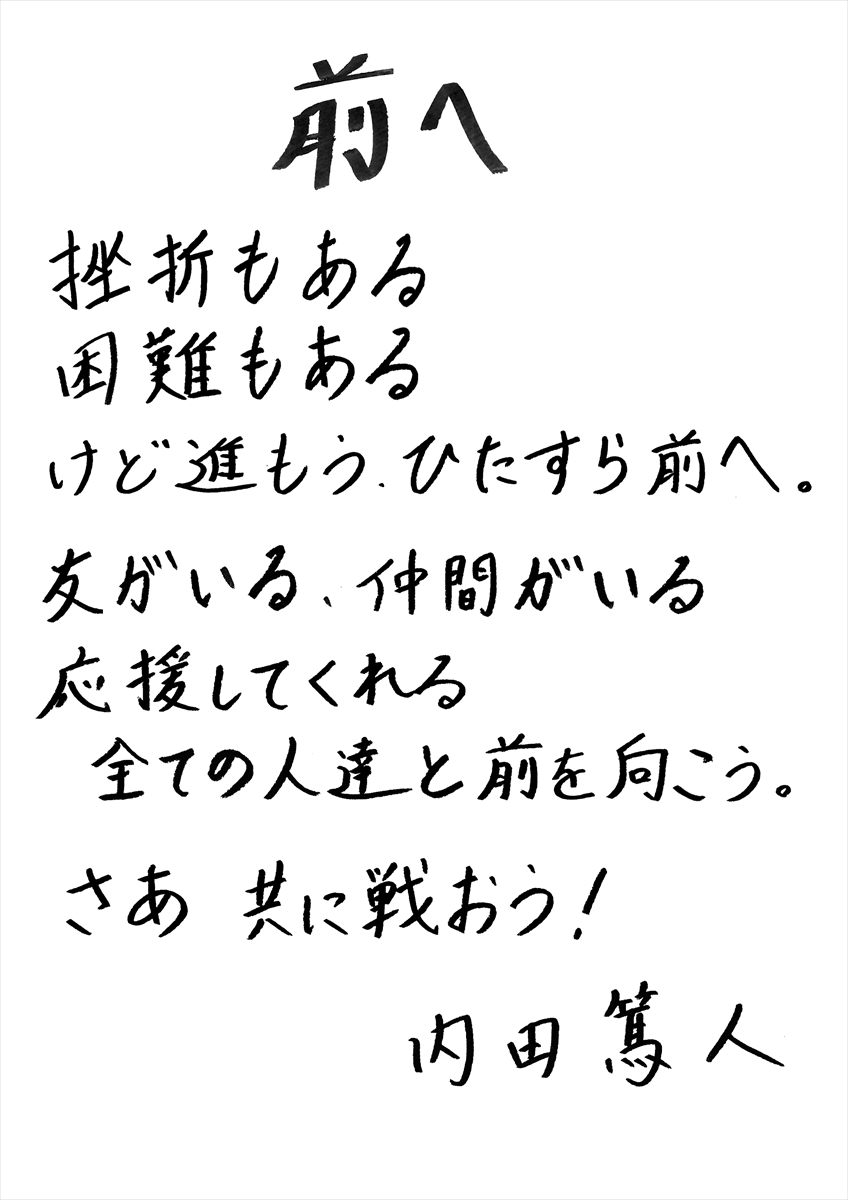 前へ
挫折もある
困難もある
けど進もう、ひたすら前へ。
友がいる、仲間がいる
応援してくれる
全ての人達と前を向こう。
さあ 共に戦おう！
内田篤人